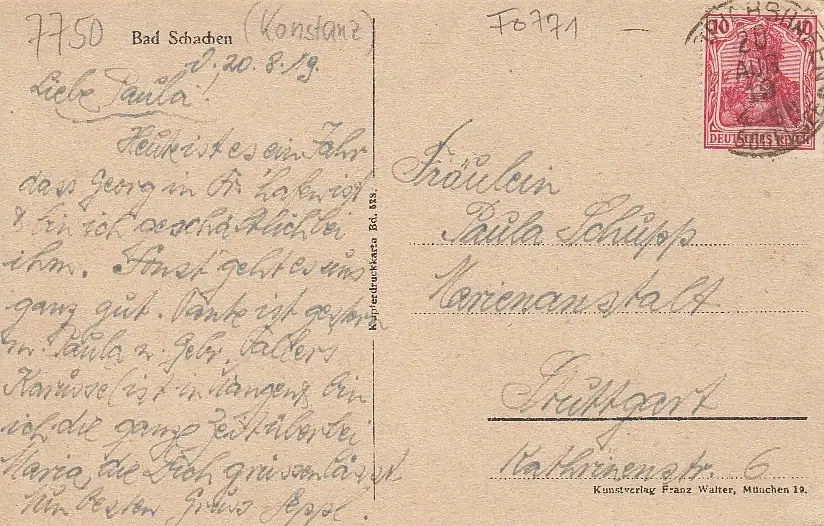 7750
(Konstanz)
Fo771
Bad Schachen
20.8.19.
Liebe Paula!
Heute ist es ein Jahr
dass Georg in Fr. ist
& bin ich geschäftlich bei
ihm. Sonst geht es uns
ganz gut. Tante ist gestern
m. Paula n. Gebr.
Karussel ist in bin
ich die ganze Zeit über bei
Maria, die Dich grüssen lässt.
besten Gruss Seppl.
Kupferdruckkarte Bd. 528.
10
DEUTSCHES REICH
20
AUG
19
Fräulein
Paula Schupp
Marienanstalt
Stuttgart
Kathrinenstr. 6
Kunstverlag Franz Walter, München 19.